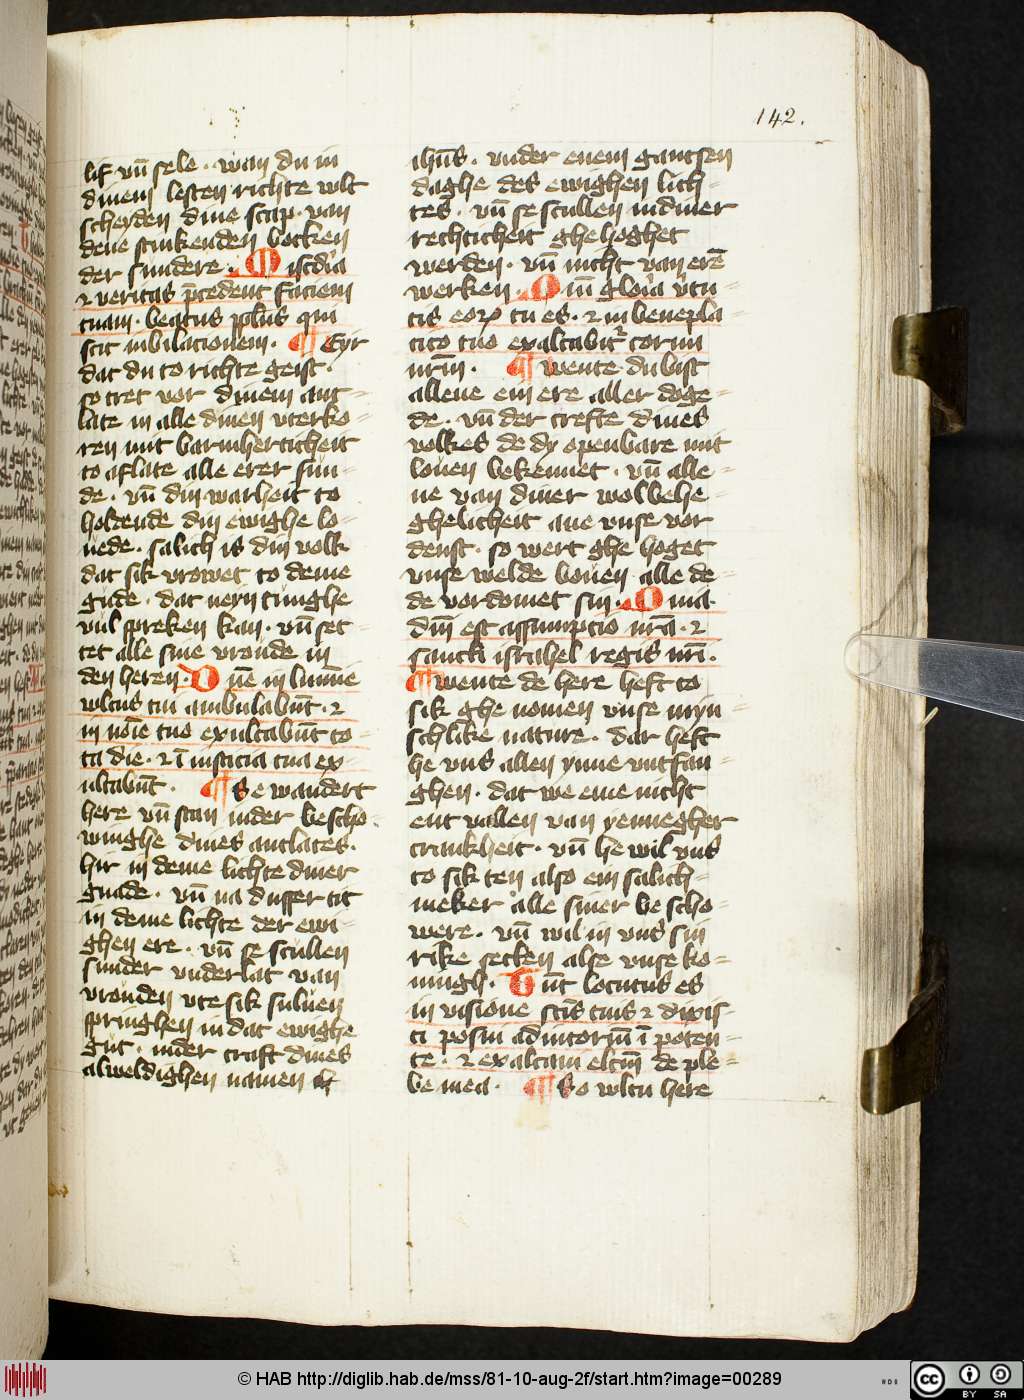 142.
lif vn̄ sele · wan du in
dinem lesten richte wlt
scheyden dine scap · van
dene stinkenden bocken
der sundere · Miscd'ia
⁊ veritas p̄cedent faciem
tuam · beatus pplus qui
scit iubilationem · ¶ Eyr
dat du to richte geist ·
so tret vor dinem ant-
late in alle dinen vterko-
ren mit barmherticheit
to aflate alle erer sun-
de · vn̄ din warheit to
holdende din ewighe lo-
uede · salich is din volk
dat sik vrowet to deme
gude · dat neyn tunghe
vul spreken kan · vn̄ set-
tet alle sine vronde in
den heren · Dn̄e in lumīe
wltus tui ambulabūt · ⁊
in noīe tuo exultabūt to-
ta die · ⁊ ī iusticia tua ex-
altabūt · ¶ Se wandert
here vn̄ stan inder bescho-
winghe dines antlates ·
hir in deme lichte diner
gnade · vn̄ na dusser tit
in deme lichte der ewi-
ghen ere · vn̄ se scullen
sunder vnderlat van
vrouden vte sik suluen
springhen in dat ewighe
gut · inder craft dines
alweldighen namen
ihūs · vnder enem gantsen
daghe des ewighen lich-
tes · vn̄ se scullen in diner
rechticheit ghehoghet
werden · vn̄ nicht van erē
werken · Qm̄ gloria v'tu-
tis eoꝝ tu es · ⁊ in benepla-
cito tuo exaltabit' cornu
nr̄m · ¶ Wente du bist
allene ein ere aller doge-
de · vn̄ der crefte dines
volkes de dy openbare mit
louen bekennet · vn̄ alle-
ne van diner wolbehe-
ghelicheit ane vnse vor
denst · so wert ghe hoget
vnse welde bouen alle de-
de vordomet sin · Quia
dn̄i est assumptio nr̄a · ⁊
sancti israhel regis nr̄i ·
¶ Wente de here heft to
sik ghe nomen vnse myn-
schlike nature · dar heft
he vns allen ynne vntfan-
ghen · dat we eme nicht
ent vallen van yennegher
crankheit · vn̄ he wil vns
to sik ten also ein salich-
meker alle siner be scho-
were · vn̄ wil in vns sin
rike setten alse vnse ko-
ningh · Tūc locutus es
in visione scīs tuis ⁊ dixis-
ti posui adiutoriū ī poten-
te · ⁊ exaltaui electū de ple-
be mea · ¶ So wltu here
© HAB http://diglib.hab.de/mss/81-10-aug-2f/start.htm?image=00289
CC BY SA